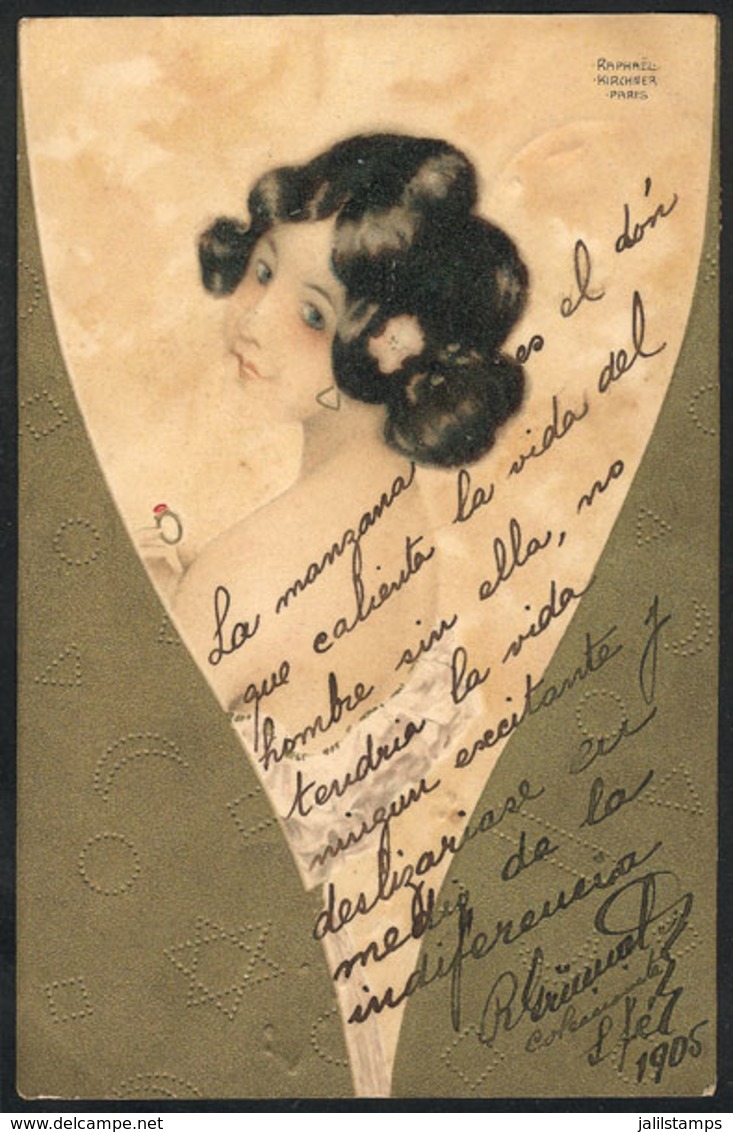 RAPHAËL
KIRCHNER
PARIS
La manzana es el dón
que calienta la vida del
hombre sin ella, no
tendria la vida
ningun excitante y
deslizariase en
medio de la
indiferencia
S. Fé
1905
delcampe.net
jalilstamps